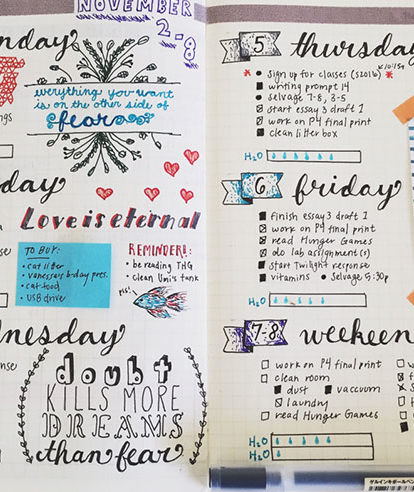 NOVEMBER
2-8
nday
everything you want
is on the other side of
fear
ngs
day
Love is eternal
TO BUY:
• cat litter
• vanessa's b-day pres.
• cat food
• USB drive
REMINDER!:
• be reading THG
• clean Uni's tank
pic!
nesday
onse
doubt
KILLS MORE
DREAMS
than fear
5
thursda
• sign up for classes (S2016)
writing prompt 14
• selvage 7-8, 3-5
start essay 3 draft 1
work on P4 final print
clean litter box
H2O
6
friday
finish essay 3 draft 1
work on P4 final print
read Hunger Games
do lab assignment(s)
start Twilight response
vitamins • Selvage 5:30p
H2O
7-8
weeken
work on P4 final print
clean room
dust vaccum
laundry
read Hunger Games
H2O
H2O